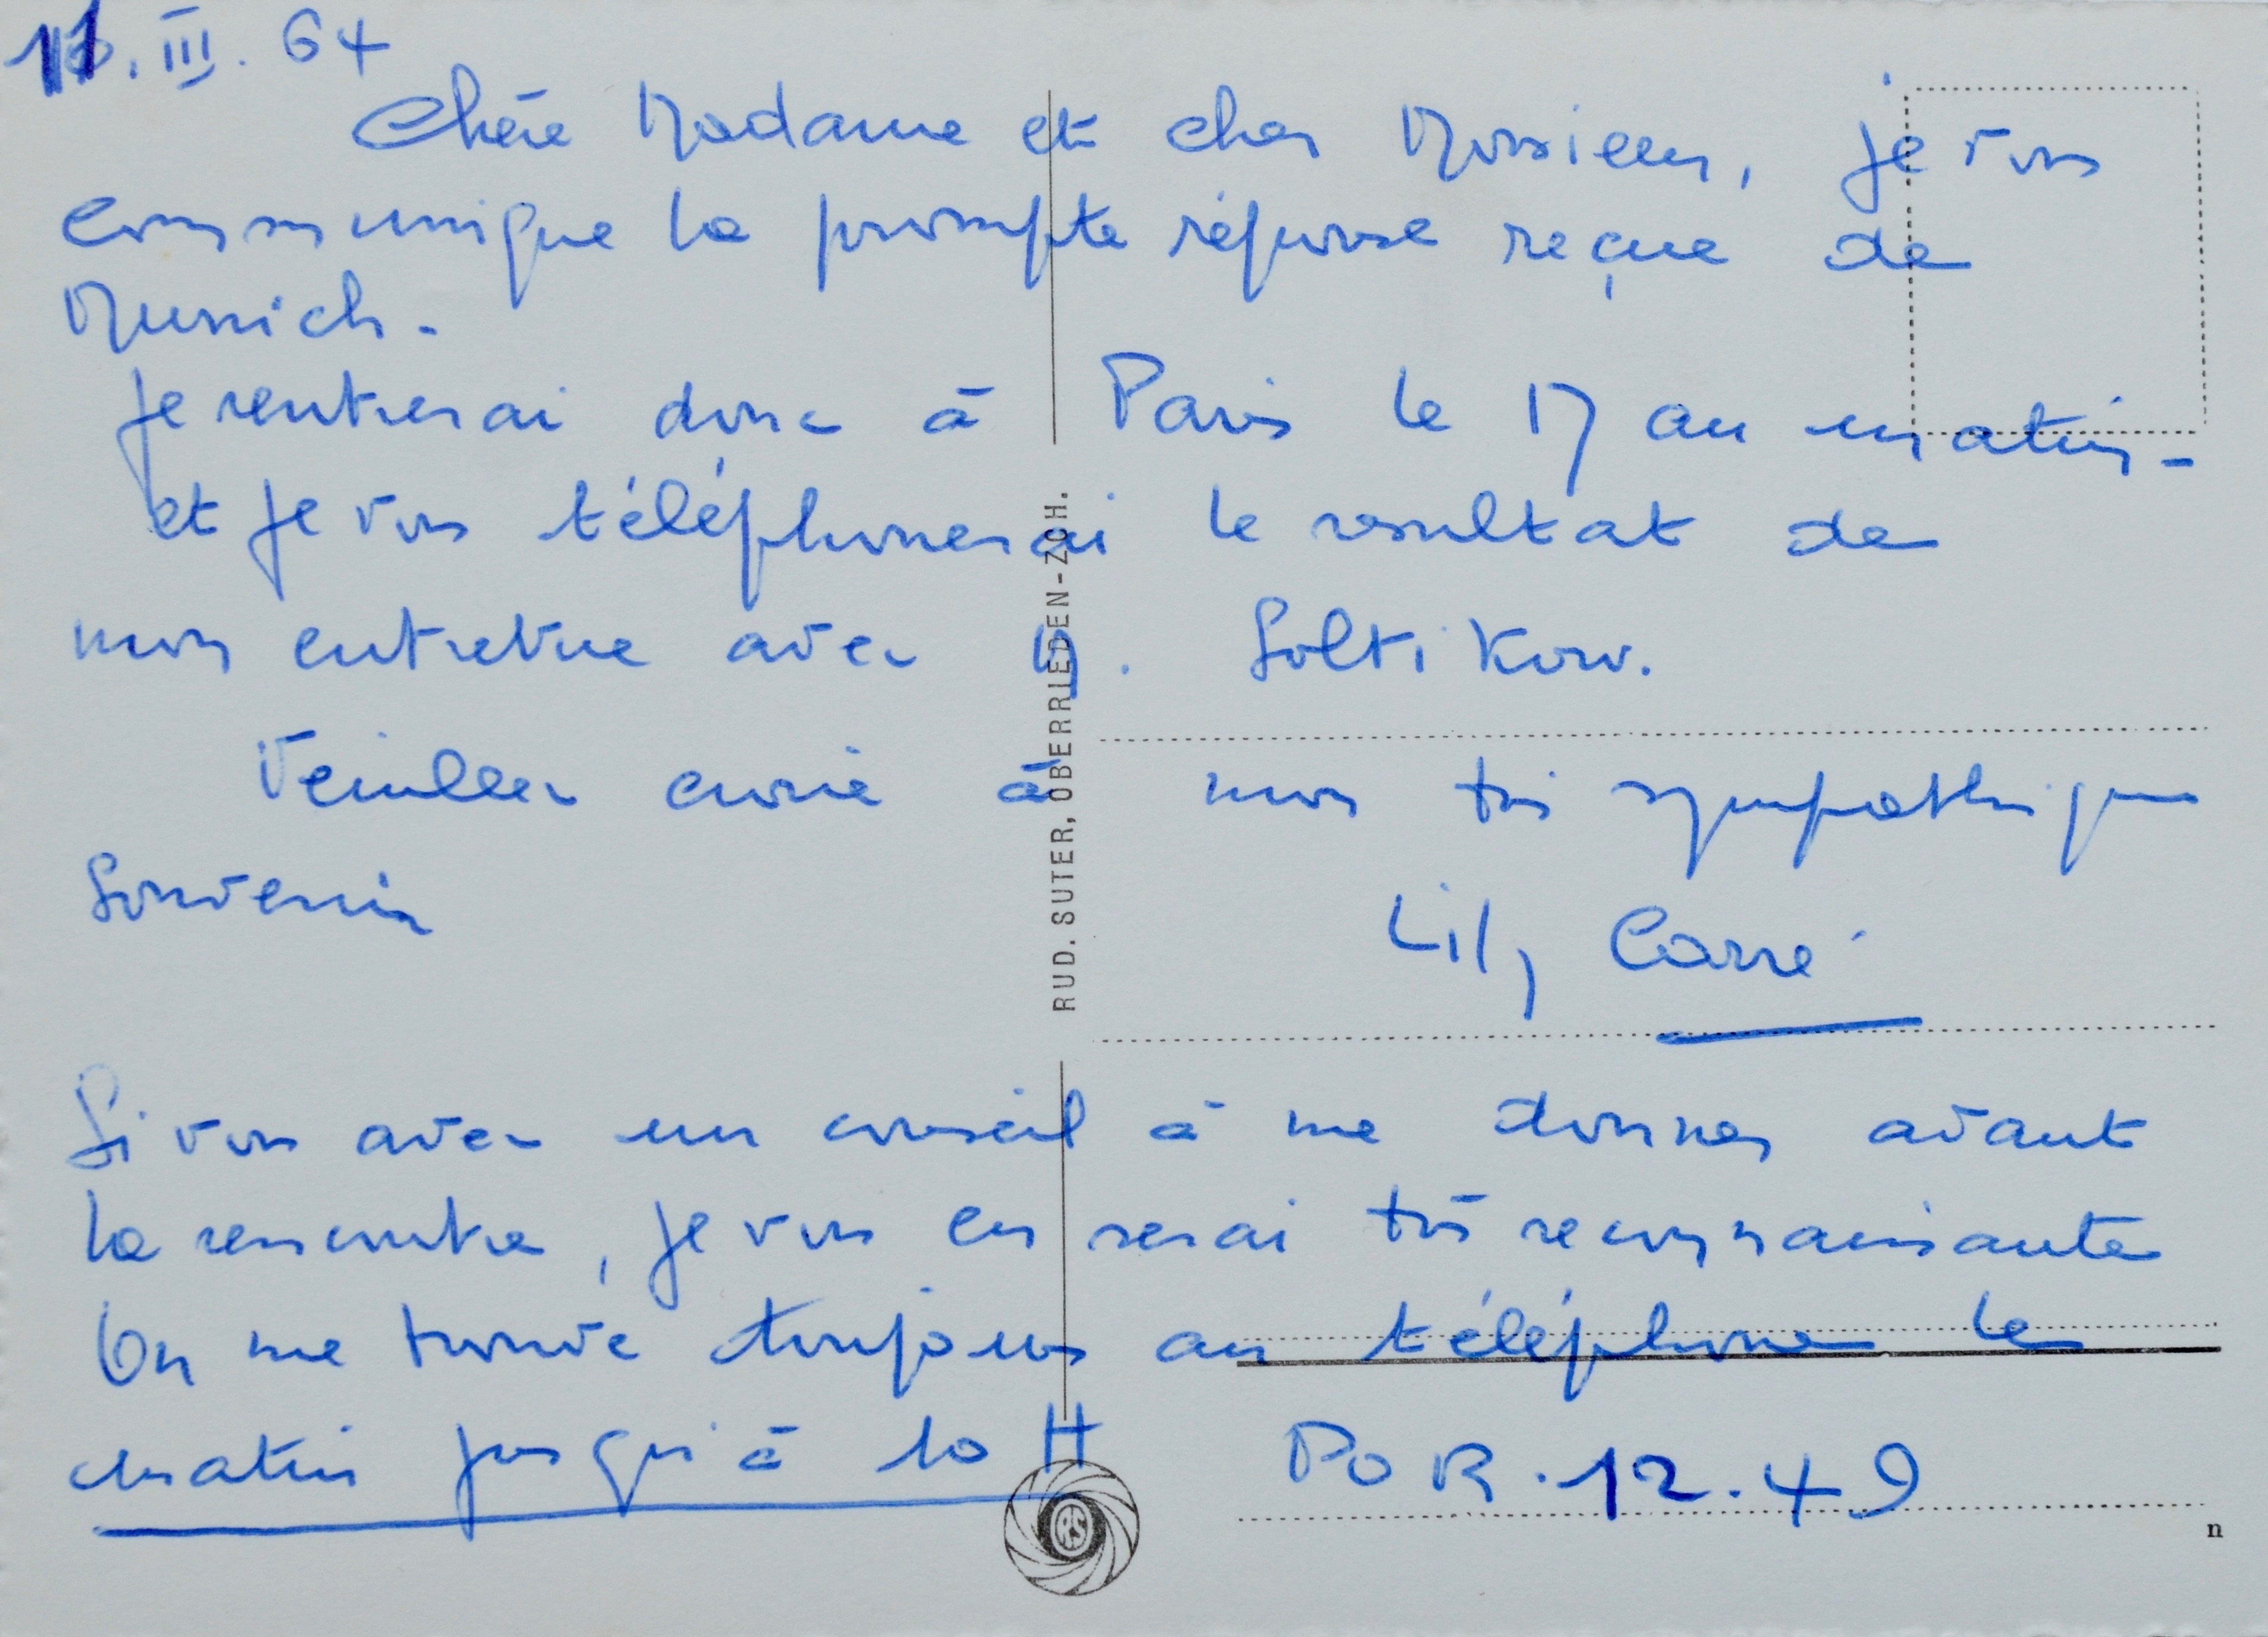 11. III. 64
Chère Madame et cher Monsieur, je vous
communique la prompte réponse reçue de
Munich.
Je rentrerai donc à Paris le 17 au matin -
et je vous téléphonerai le resultat de
mon entrevue avec M. Soltikow.
Veuillez croire à mon très sympathique
Souvenir
Lily Carré
Si vous avez un conseil à me donner avant
la rencontre, je vous en serai très reconnaissante
On me trouve toujours au téléphone le
matin jusqu'à 10 H POR.12.49
RUD. SUTER, OBERRIEDEN-ZCH.
RS
n